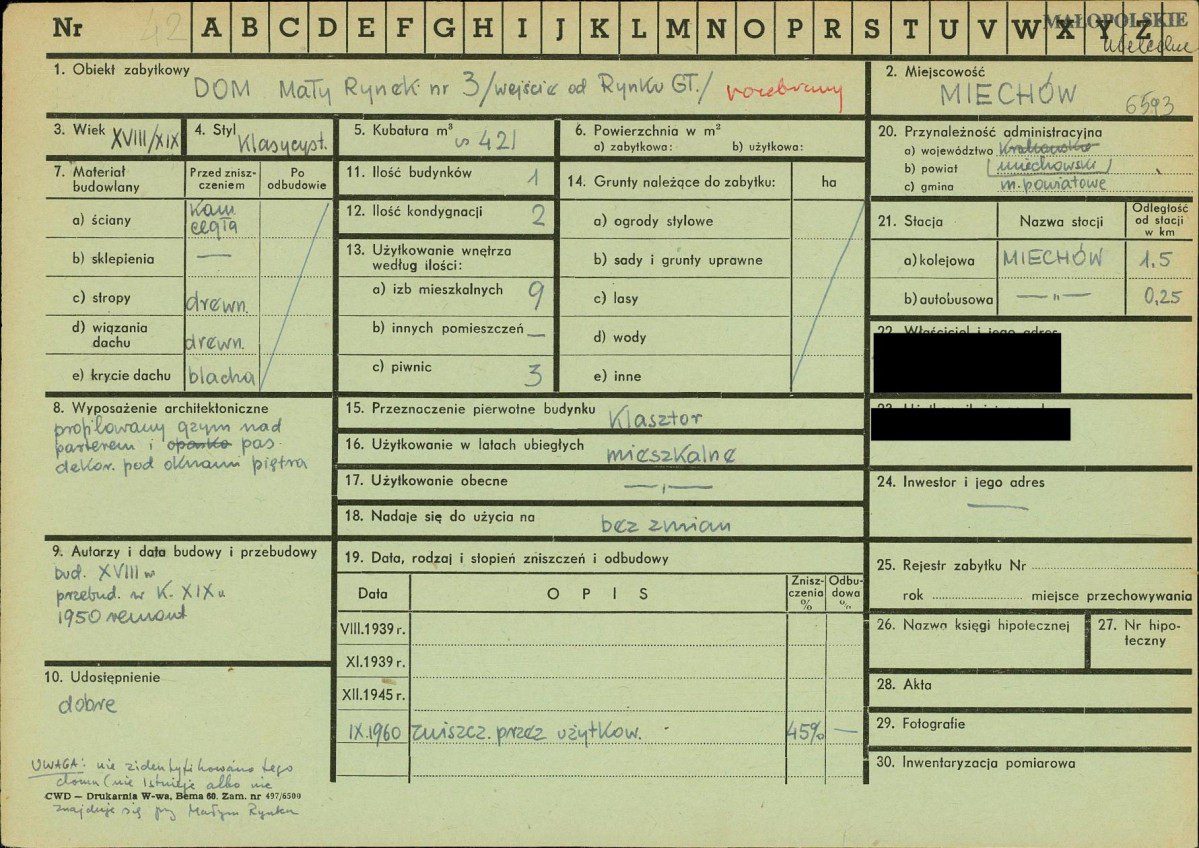 Nr 42 A B C D E F G H I J K L M N O P R S T U V W X Y Z
MAŁOPOLSKIE
1. Obiekt zabytkowy
DOM Mały Rynek nr 3 /wejście od Rynku GT./ rozebrany
2. Miejscowość
MIECHÓW
6593
3. Wiek XVIII/XIX
4. Styl Klasycyst.
5. Kubatura m³ ∾ 421
6. Powierzchnia w m²
a) zabytkowa: b) użytkowa:
7. Materiał budowlany
Przed zniszczeniem
Po odbudowie
a) ściany kam cegła
b) sklepienia —
c) stropy drewn.
d) wiązania dachu drewn.
e) krycie dachu blacha
8. Wyposażenie architektoniczne
profilowany gzyms nad
parterem i opaska pas
dekor. pod oknami piętra
9. Autorzy i data budowy i przebudowy
bud. XVIII w
przebud. w K. XIX w
1950 remont
10. Udostępnienie
dobre
UWAGA: nie zidentyfikowano tego
domu (nie istnieje albo nie
CWD – Drukarnia W-wa, Bema 60. Zam. nr 497/6500
znajduje się przy Małym Rynku
11. Ilość budynków 1
12. Ilość kondygnacji 2
13. Użytkowanie wnętrza
według ilości:
a) izb mieszkalnych 9
b) innych pomieszczeń —
c) piwnic 3
14. Grunty należące do zabytku: ha
a) ogrody stylowe
b) sady i grunty uprawne
c) lasy
d) wody
e) inne
15. Przeznaczenie pierwotne budynku Klasztor
16. Użytkowanie w latach ubiegłych mieszkalne
17. Użytkowanie obecne —„—
18. Nadaje się do użycia na bez zmian
19. Data, rodzaj i stopień zniszczeń i odbudowy
Data OPIS Zniszczenia % Odbudowa %
VIII.1939 r.
XI.1939 r.
XII.1945 r.
IX.1960 zniszcz. przez użytkow. 45% —
20. Przynależność administracyjna
a) województwo Krakowskie
b) powiat miechowski
c) gmina m. powiatowe
21. Stacja Nazwa stacji Odległość od stacji w km
a) kolejowa MIECHÓW 1.5
b) autobusowa —„— 0,25
22. Właściciel i jego adres
24. Inwestor i jego adres
—
25. Rejestr zabytku Nr
rok miejsce przechowywania
26. Nazwa księgi hipotecznej
27. Nr hipoteczny
28. Akta
29. Fotografie
30. Inwentaryzacja pomiarowa